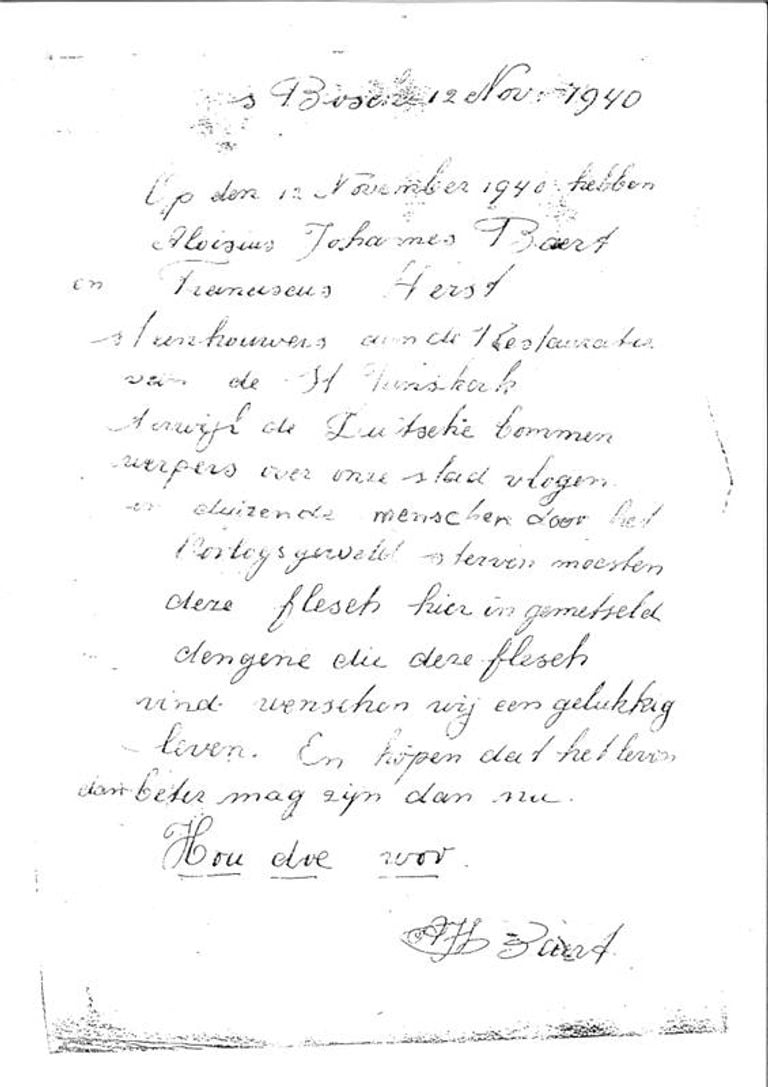 s Bosch 12 Nov. 1940
Op den 12 November 1940 hebben
Aloisius Johannes Baert
en Franciscus Herst
steenhouwers aan de Restauratie
van de St Janskerk
terwijl de Duitsche bommen
werpers over onze stad vlogen
en duizende menschen door het
Oorlogsgeweld sterven moesten
deze flesch hier in gemetseld
dengene die deze flesch
vind wenschen wij een gelukkig
leven. En hopen dat het leven
dan beter mag zijn dan nu.
Hou doe wor.
Baert